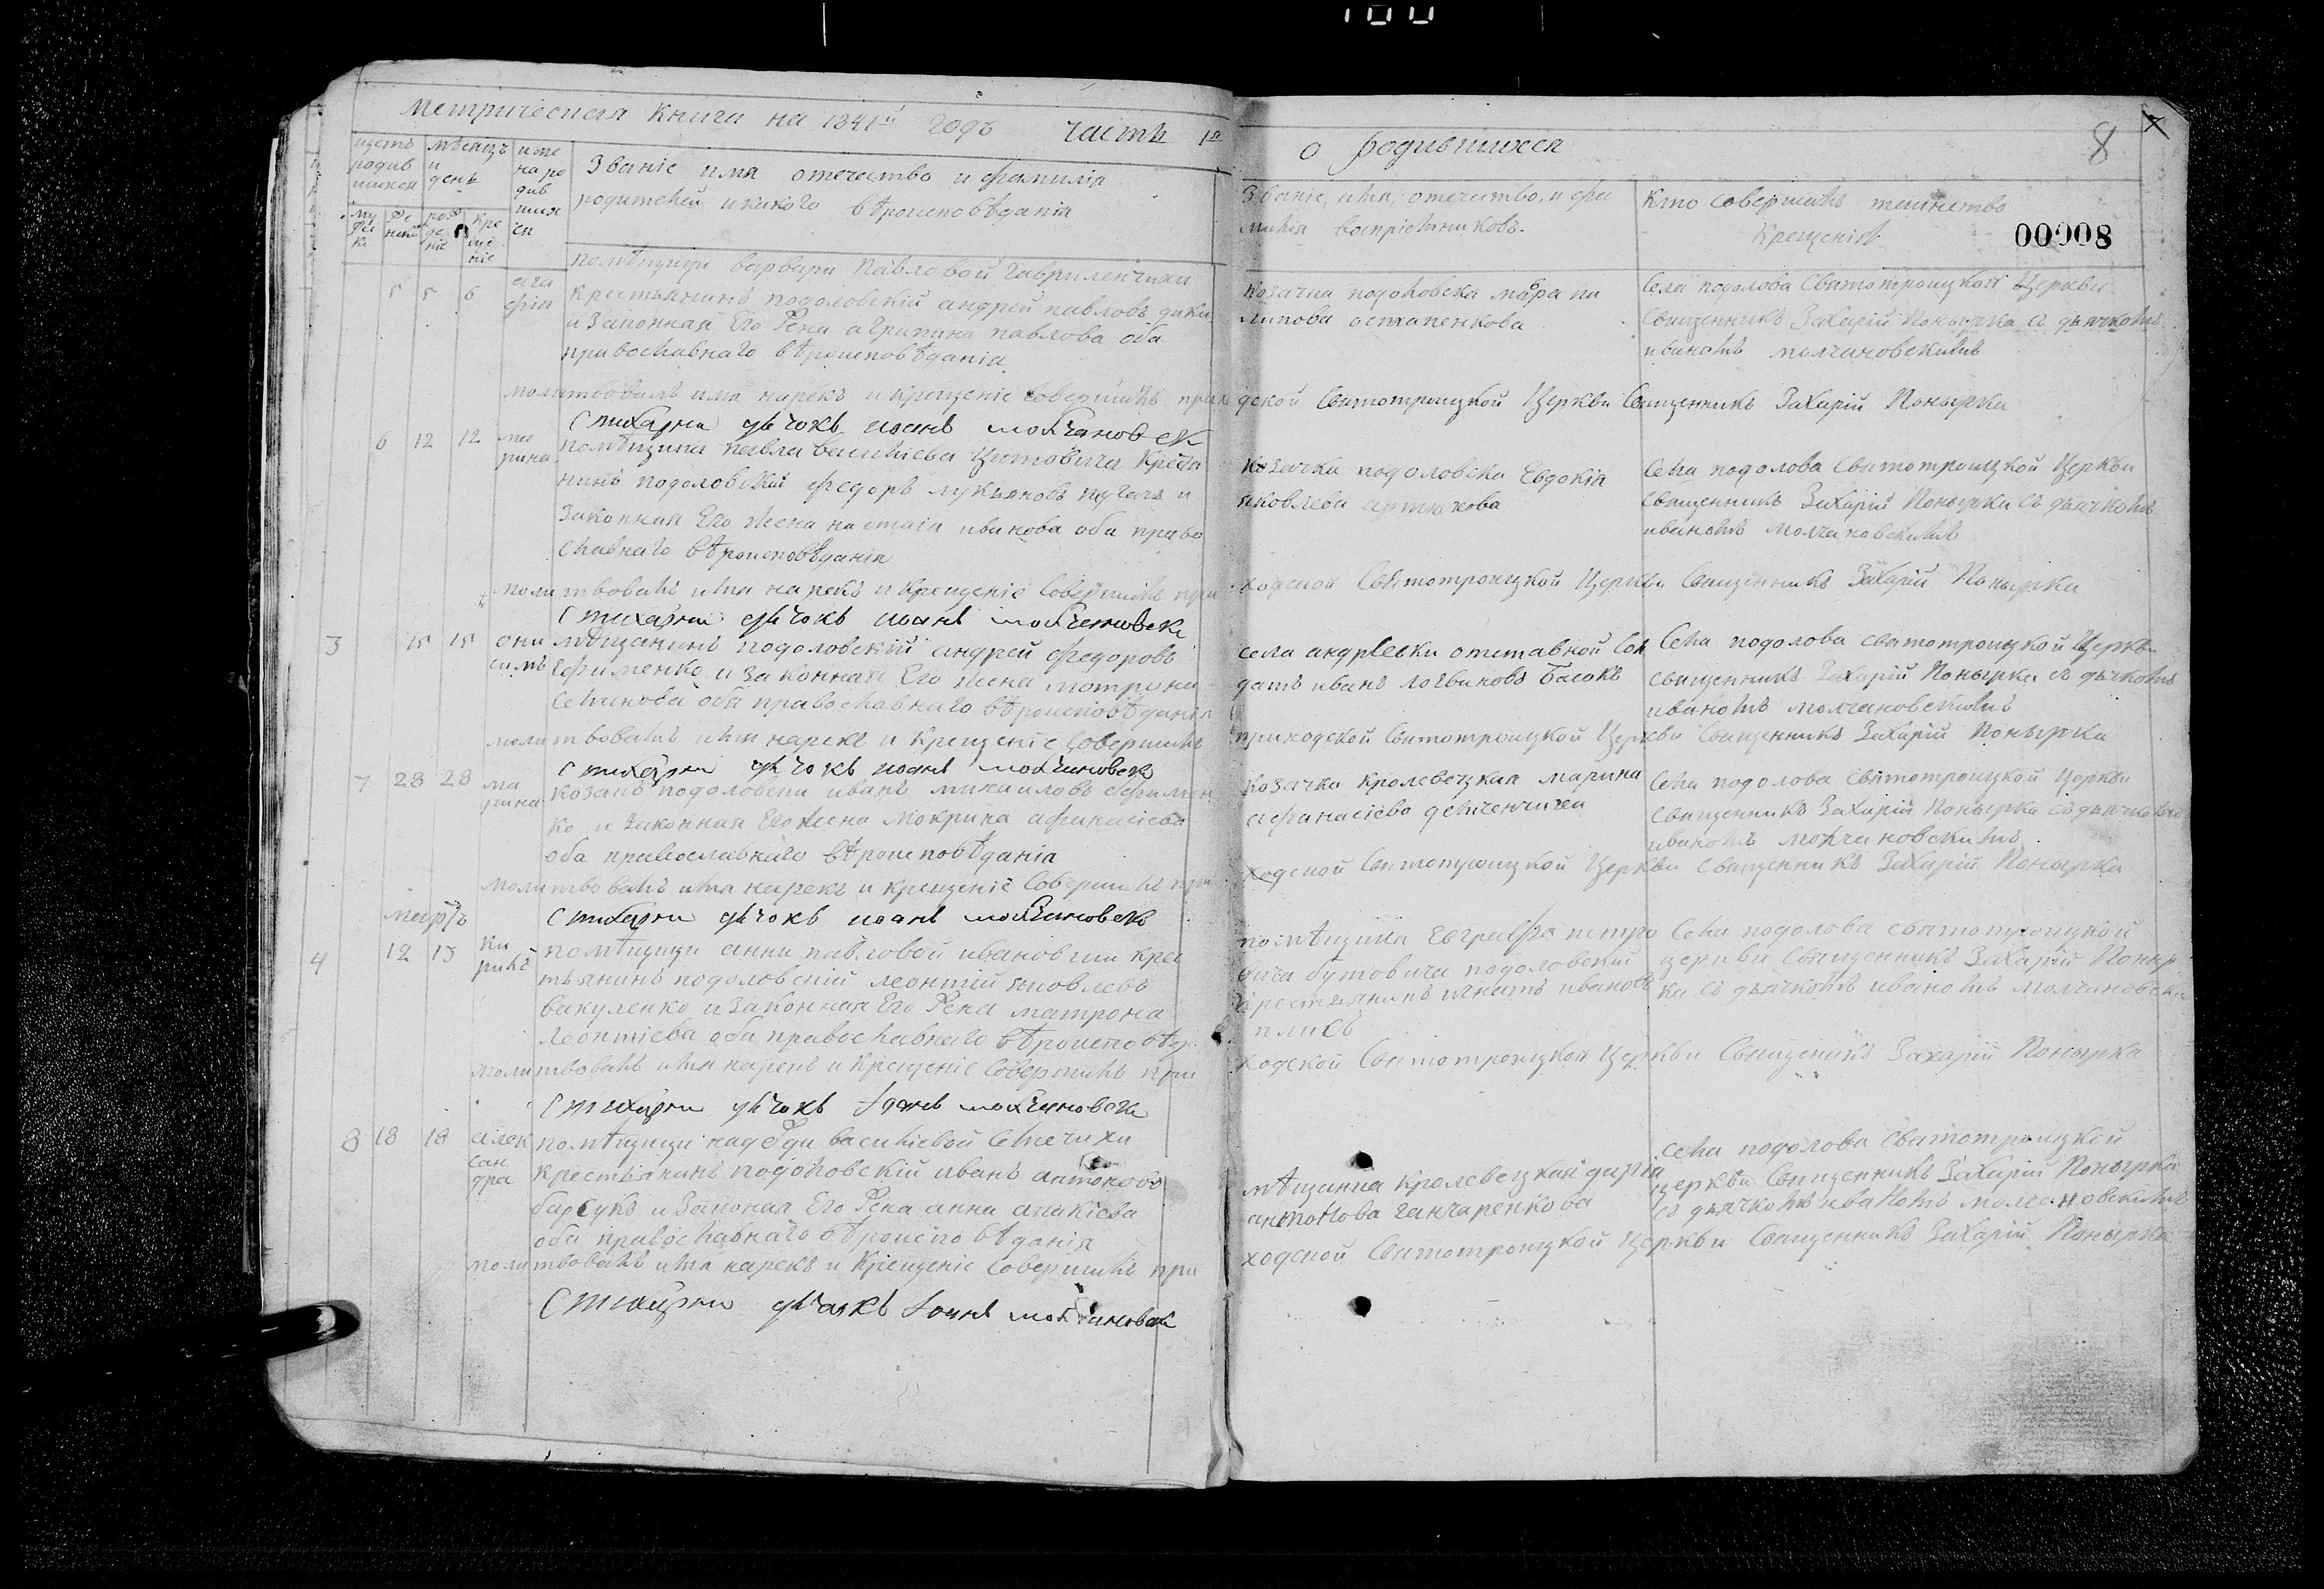 метрическая книга на 1841й годъ часть 1я
о родившихся
8
00008
щетъ родив шихся
мѣсяцъ и день
име на ро див ших ся
Званіе имя отечество и фамилія
родителей и какого вѣроисповѣданія
му жес ка
же нска
рож де ніе
кре ще ніе
Званіе, имя, отечество, и фа
милія воспріемниковъ.
Кто совершалъ таинство
крещенія
5 5 6 ага фія
помѣщици варвари Павловой гавриленчихи
крестьянинъ подоловскій андрей павловъ
и законная Его жена агрипина павлова оба
православнаго вѣроисповѣданія
козачка подоловска мавра пи
липова остапенкова
Села подолова Святотроицкой Церкви
Священникъ Захарій Понырка съ дьячкомъ
иваномъ молчановскимъ
молитвовалъ имя нарекъ и крещеніе совершилъ прихо
дской Святотроицкой Церкви Священникъ Захарій Понырка
Стихарни дьчокъ иоанъ молчановск
6 12 12 ма рина
помѣщика павла василиева Кресtя
нинъ подоловскій федоръ лукьяновъ и
Законная Его жена настасія иванова оба право
славнаго вѣроисповѣданія
Козачка подоловска Евдокія
яковлева артюхова
Села подолова Святотроицкой Церкви
Священникъ Захарій Понырка съ дьячкомъ
иваномъ молчановскимъ
молитвовалъ имя нарекъ и крещеніе Совершилъ при
ходской Святотроицкой Церкви Священникъ Захарій Понырка
Стихарни дьчокъ иоанъ молчановск
3 15 15 они симъ
мѣщанинъ подоловскій андрей федоровъ
Ефименко и Законная Его жена мотрона
Семенова оба православнаго вѣроисповѣданія
села андреевки отставной Сол
датъ иванъ логвиновъ басокъ
Села подолова святотроицкой Церкви
священникъ Захарій Понырка съ дьячкомъ
иваномъ молчановскимъ
молитвовалъ имя нарекъ и крещеніе Совершилъ
приходской Святотроицкой Церкви Священникъ Захарій Понырка
Стихарни дьчокъ иоанъ молчановск
7 28 28 ма рина
козакъ подоловски иванъ михаиловъ ефимен
ко и законная Его жена мокрина афанасіева
оба православнаго вѣроисповѣданія
козачка кролевецкая марина
афанасіева демченчиха
Села подолова святотроицкой Церкви
Священникъ Захарій Понырка съ дьячкомъ
иваномъ молчановскимъ
молитвовалъ имя нарекъ и крещеніе Совершилъ при
ходской Святотроицкой Церкви Священникъ Захарій Понырка
Стихарни дьчокъ иоанъ молчановск
мартъ
4 12 13 ки рилъ
помѣщици анни павловой ивановни крес
тьянинъ подоловскій леонтій яковлевъ
вакуленко и Законная Его жена матрона
Леонтіева оба православнаго вѣроисповѣд
помѣщика Евграфа петро
вича бутовича подоловский
крестьянинъ игнатъ ивановъ
плисъ
Села подолова святотроицкой
церкви Священникъ Захарій Поныр
ка съ дьячкомъ иваномъ молчановски
молитвовалъ имя нарекъ и крещеніе Совершилъ при
ходской Святотроицкой Церкви Священикъ Захарій Понырка
Стихарни дьчокъ Іоанъ молчановск
8 18 18 алек сан дра
помѣщици надежди василіевой
крестьянинъ подоловскій иванъ антоновъ
барсукъ и Законая Его жена анна
оба православнаго вѣроисповѣданія
мѣщанка кролевецкая дарія
антонова ганчаренкова
Села подолова Святотроицкой
церкви Священникъ Захарій Понырка
съ дьячкомъ иваномъ молчановскимъ
молитвовалъ имя нарекъ и Крещеніе Совершилъ при
ходской Святотроицкой Церкви Священникъ Захарій Понырка
Стихарни дьчокъ Іоанъ молчановск